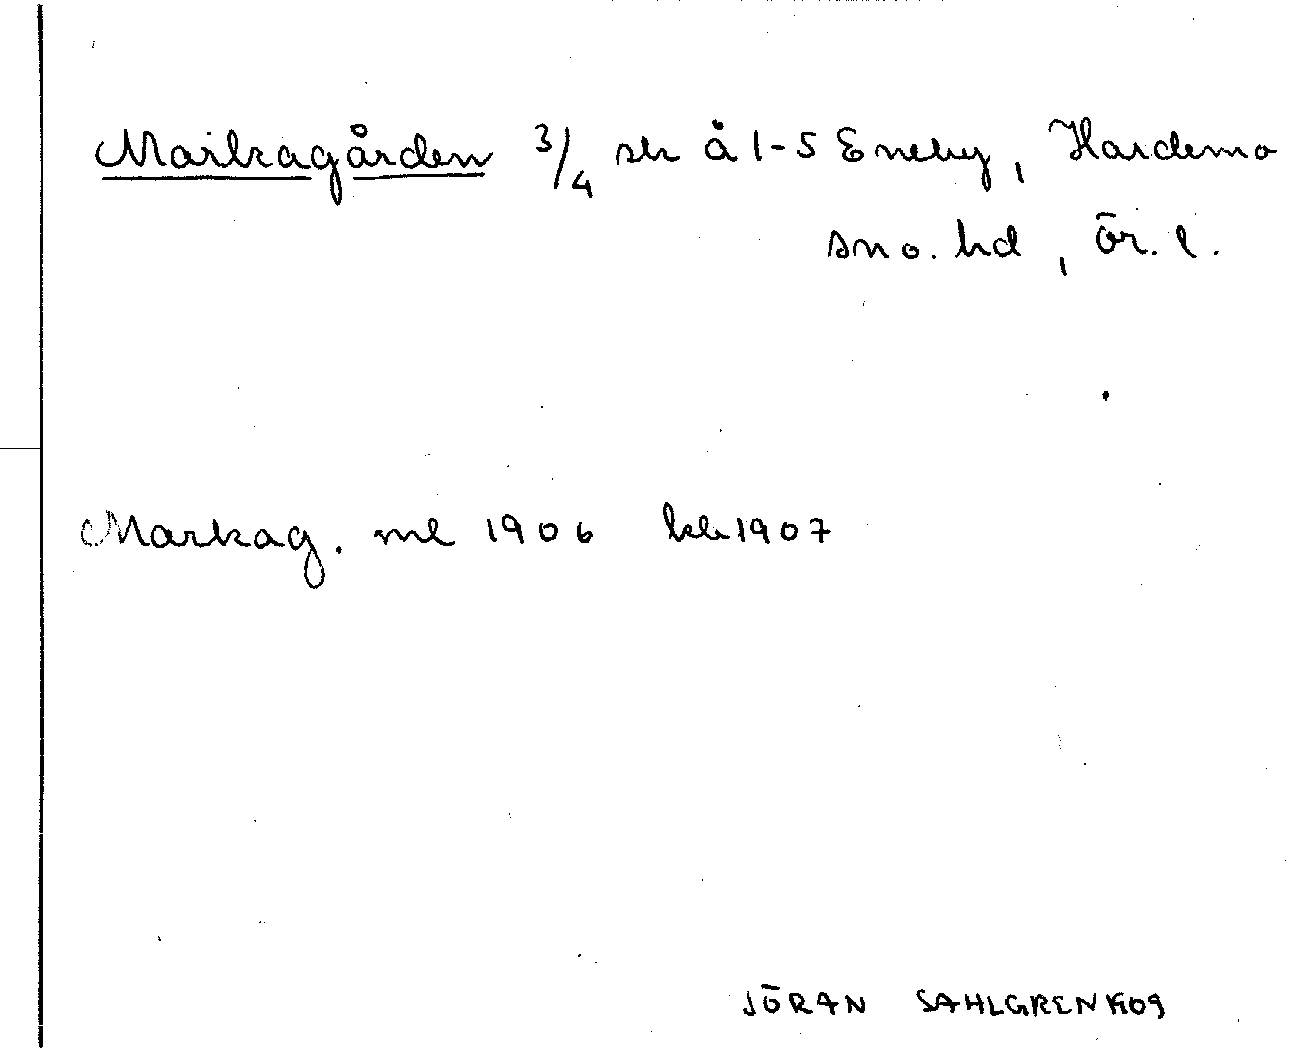 Markagården 3/4 sk å 1-5 Eneby, Hardemo
sn o. hd, Ör. l.
Markag. ml 1906 kb 1907
JÖRAN SAHLGREN 1909